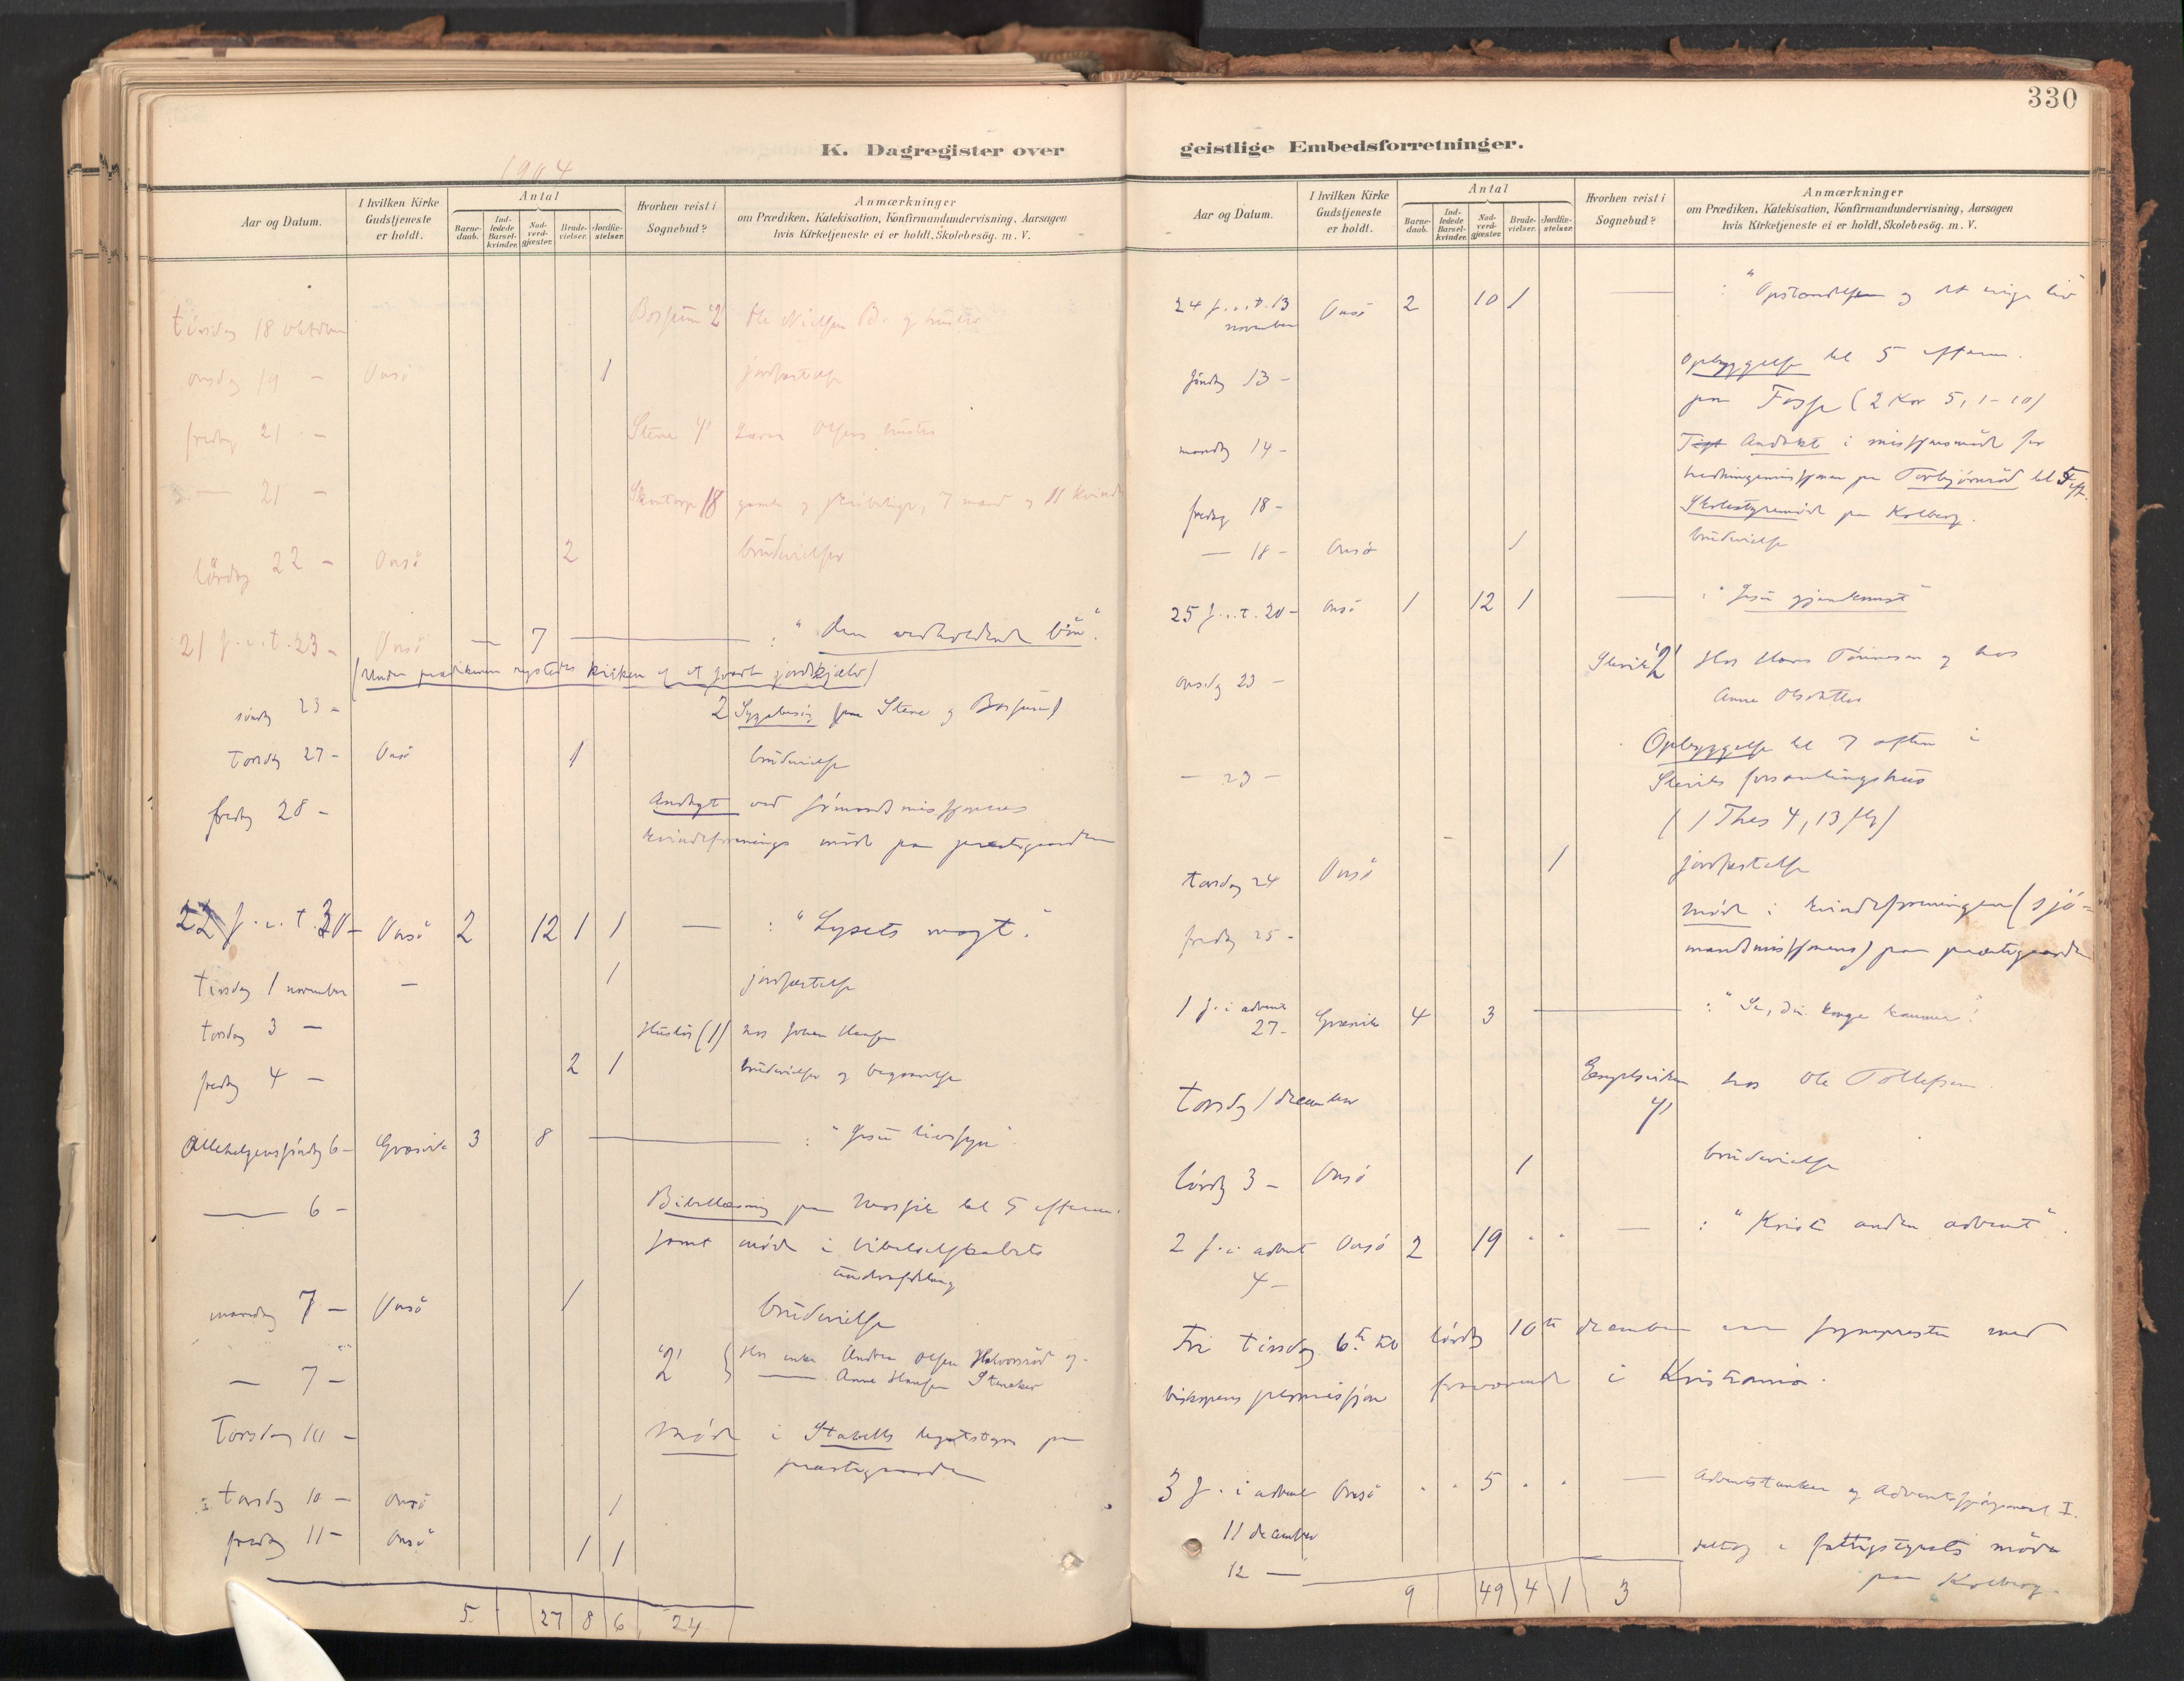 K. Dagregister over
1904
Aar og Datum.
I hvilken Kirke Gudstjeneste er holdt.
Antal
Barne-daab.
Ind-ledede Barsel-kvinder.
Nad-verd-gjæster.
Brude-vielser.
Jordfæ-stelser.
Hvorhen reist i Sognebud?
Anmærkninger
om Prædiken, Katekisation, Konfirmandundervisning, Aarsagen
hvis Kirketjeneste ei er holdt, Skolebesög. m. V.
tirsdag 18 oktober 2 Ole Nielsen B. og hustru
onsdag 19 — Onsö 1 jordfæstelse
fredag 21 — Stene 1 Olsens hustru
— 21 — 18 gamle og 7 mænd og 11 kvinder
lördag 22 — Onsö 2 brudevielser
21 s. e. t. 23 — Onsö — 7 — : "Den vedholdende bön".
(Under prædikenen rystedes kirken af et svært jordskjælv)
söndag 23 — 2 Sygebesög paa Stene og
Torsdag 27 — Onsö 1 brudevielse
fredag 28 — Andagt ved sjömandsmissjonens
kvindeforenings möde paa præstegaarden
22 s. e. t. 30 — Onsö 2 12 1 1 — : "Lysets magt".
tirsdag 1 november — 1 jordfæstelse
torsdag 3 — (1) hos Johan Hansen
fredag 4 — 2 1 brudevielser og begravelse
Allehelgenssöndag 6 — Græsvik 3 8 — : "Jesu livssyn".
— 6 — Bibellæsning paa kl 5 efterm.
samt möde i bibelselskabets
underafdeling
mandag 7 — Onsö 1 brudevielse
— 7 — 2 Hos enke Andrea Olsen Halvorsröd og
— Anne Hansen
Torsdag 10 — Möde i Stabells legatstyre paa
præstegaarden
torsdag 10 — Onsö 1
fredag 11 — Onsö 1 1
5 27 8 6 24
330
geistlige Embedsforretninger.
Aar og Datum.
I hvilken Kirke Gudstjeneste er holdt.
Antal
Barne-daab.
Ind-ledede Barsel-kvinder.
Nad-verd-gjæster.
Brude-vielser.
Jordfæ-stelser.
Hvorhen reist i Sognebud?
Anmærkninger
om Prædiken, Katekisation, Konfirmandundervisning, Aarsagen
hvis Kirketjeneste ei er holdt, Skolebesög. m. V.
24 s. e. t. 13 november Onsö 2 10 1 — : "Opstandelsen og det evige liv
söndag 13 — Opbyggelse kl 5 efterm.
paa (2 Kor 5, 1-10)
mandag 14 — Andakt i missjonsmöde for
hedningemissjonen paa Torbjörnröd kl 5 eft.
fredag 18 — Skolestyremöde paa Kolberg.
— 18 — Onsö 1 brudevielse
25 s. e. t. 20 — Onsö 1 12 1 — : "Jesu gjenkomst"
onsdag 23 — Slevik 2 Hos Hans Tönnesen og hos
Anne Olsdatter
— 23 — Opbyggelse kl 7 aften i
Sleviks forsamlingshus
(1 Thes 4, 13 flg)
torsdag 24 Onsö 1 jordfæstelse
fredag 25 — Möde i kvindeforeningen (sjö-
mandsmissjonens) paa præstegaarden
1 s. i advent 27 — Græsvik 4 3 — : "Se, din konge kommer".
Torsdag 1 december 1 hos Ole Tollefsen
lördag 3 — Onsö 1 brudevielse
2 s. i advent 4 — Onsö 2 19 — : "Kristi anden advent".
Fri tirsdag 6te til lördag 10de december var sognepresten med
biskopens permissjon fraværende i Kristiania.
3 s. i advent Onsö 5 — Adventstanker og Adventsspörgsmaal I.
11 december
12 — deltog i fattigstyrets möde
paa Kolberg.
9 49 4 1 3